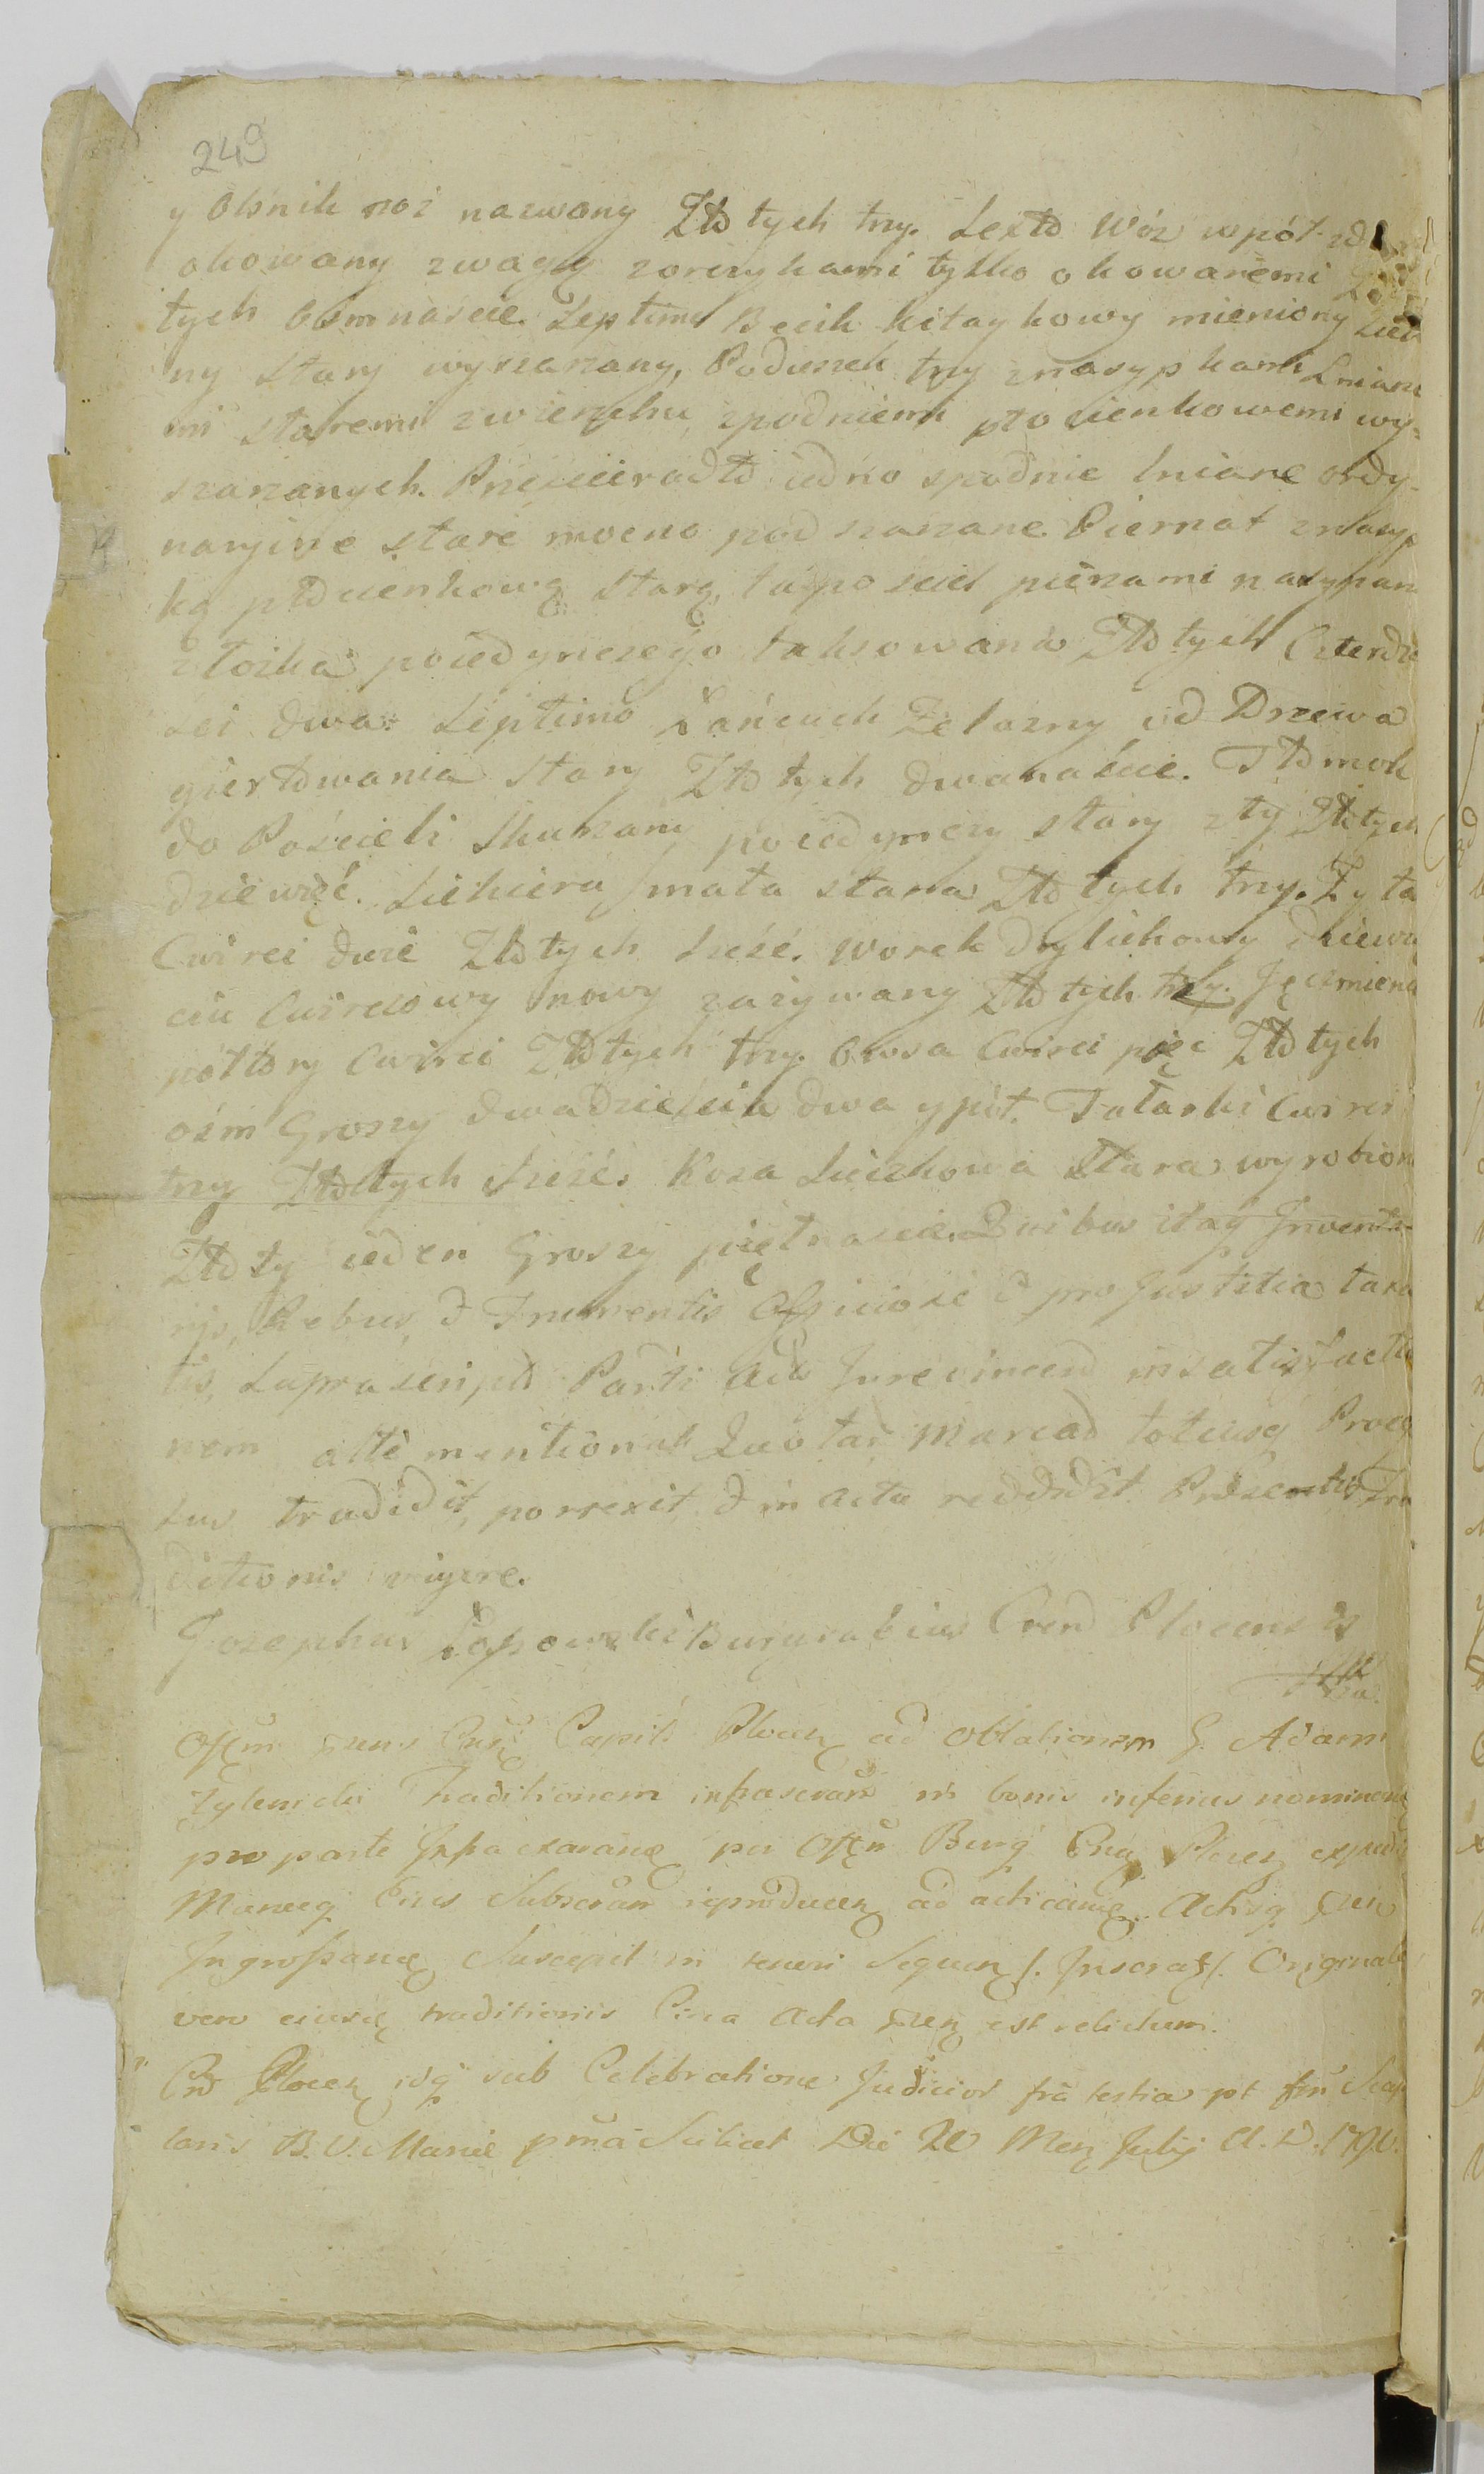 249
y Ośnik noż nazwany Złotych trzy. Sexto Wóz wpół
okowany zwagą zorczykami tylko okowanemi
tych Ośmnaście. Septimo Becik kitaykowy mieniony
ny stary wyszarzany, Poduszek trzy znasypkami Lniane
mi staremi zwierzchu, spodniemi płocienkowemi wy=
szarzanych. Prześcieradło iedno spodnie lniane ordy-
naryine stare mocno pod szarzane. Piernat znasyp
ką płucienkową starą, ta pościel pierzami nasypan
złożka poiedynczego taksowana Złotych Czterdzie
sci dwa. Septimo Łańcuch Żelazny od Drzewa
giertowania stary Złotych dwanaście. Tłomok
do Pościeli Skurzany poiedynczy stary zły Złotych
dziewięć. Siekiera mała stara Złotych trzy. Żyta
Cwirci dwie Złotych sześć. Worek drylichowy dziewię
ciu Cwirciowy nowy zażywany Złotych trzy. Jęczmienia
półtory Cwirci Złotych trzy. Owsa Cwirci pięć Złotych
ośm Groszy dwadzieścia dwa y pół. Tatarki Cwirci
trzy Złotych sześć. Koza Sieczkowa stara wyrobion
Złoty ieden Groszy piętnaście. Quibus itaq Inventa
rijs, Rebus, & Frumentis Officiose & pro Justitia taxa
tis, suprascripto Parti Acto Jurevincend in satisfactio
nem alte mentionat Quotar Marcar totiusq Proces
sus tradidit, porrexit, & in acta reddidit. Præsentis Tra
ditionis vigore.
Josephus Łopowski Burgrabius Cren Plocens
Offm præns Cas Capit Plocen ad oblationem G. Adami
Zylenicki Traditionem infrascram in bonis inferius nominan
pro parte Infra exarana per Offm Burg Cren Plocen expedi
Manuq Eius Subscram reproducen ad acticand Actisq præn
Ingrossand Suscepit in tenore Sequen /. Inserat /. Originale
vero eiusd traditionis Circa Acta præn est relictum.
Plocen isq sub Celebratione Judicior tra testia pt fm Scap
laris B. V. Mariæ pma Scilicet Die 20 Men Julij A. D. 179